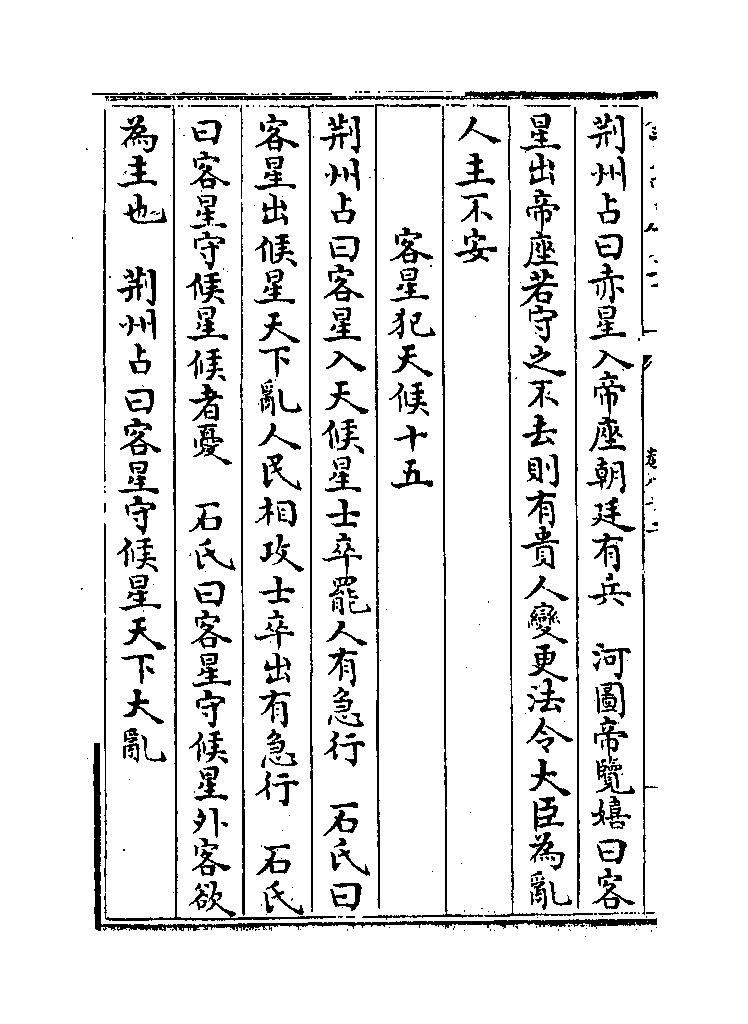 荆州占曰赤星入帝座朝廷有兵　河圖帝覽嬉曰客
星出帝座若守之不去則有貴人變更法令大臣為亂
人主不安
客星犯天候十五
荆州占曰客星入天候星士卒罷人有急行　石氏曰
客星出候星天下亂人民相攻士卒出有急行　石氏
曰客星守候星候者憂　石氏曰客星守候星外客欲
為主也　荆州占曰客星守候星天下大亂